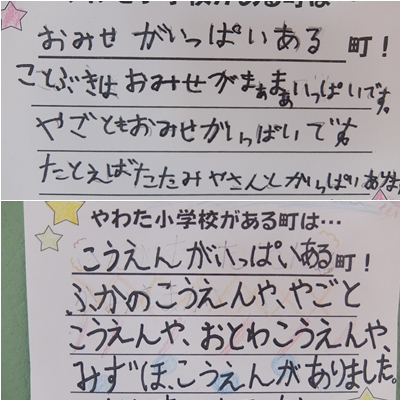 小学校がある町は
おみせがいっぱいある町!
ことぶきはおみせがまぁまぁいっぱいです。
やごともおみせがいっぱいです。
たとえばたたみやさんとかいっぱい
やわた小学校がある町は…
こうえんがいっぱいある町!
ふかのこうえんや、やごと
こうえんや、おとわこうえんや、
みずほ、こうえんがありました。